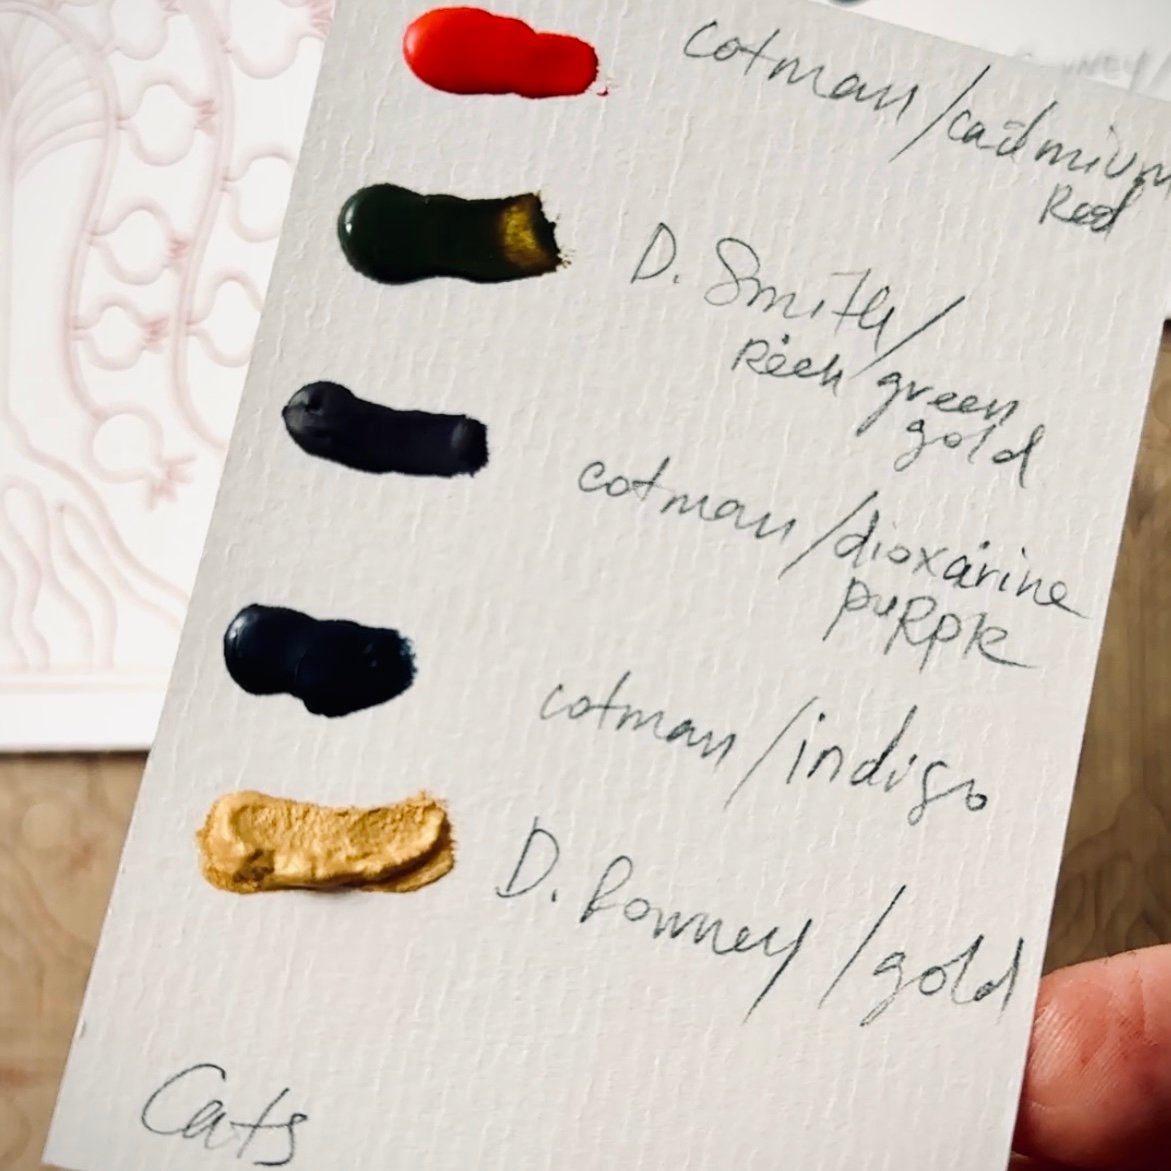 cotman / cadmium
Red
D. Smith /
Rich green
gold
cotman / dioxazine
puRple
cotman / indigo
D. Rowney / gold
Cats